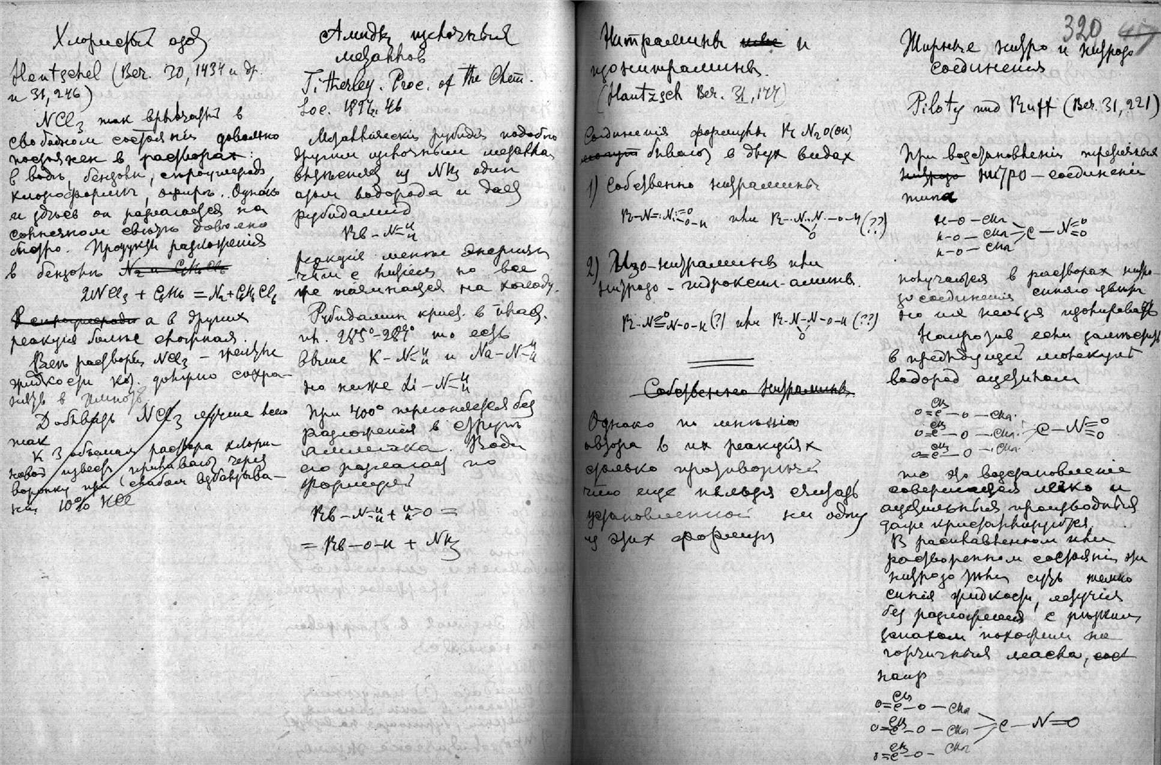 Хлористый азот
Hantzschel (Ber. 30, 1434 и др.
и 31, 246)
NCl₃ как
свободном состоянiи довольно
постоянен в растворах:
в воде, бензоле,
хлороформе, эфире. Однако
и здесь он разлагается на
солнечном свету довольно
быстро. Продукты разложения
в бензоле
2NCl₃ + C₆H₆ = N₂ + C₆H₆Cl₆
а в других
реакция более сложная.
NCl₃ –
жидкости
Добывать NCl₃ лучше всего
так
К 3 объемам раствора хлорн
новой извести приливают через
воронку при слабом взбалтыва-
нии 10% HCl
Амиды щелочных
металлов
Titherley. Proc. of the Chem.
Soc. 1897. 46
Металлический рубидий подобно
другим щелочным металлам
вытесняет из NH₃ один
атом водорода и дает
рубидамид
Rb–N=H H
реакция менее энергична
чем с
же начинается на холоду.
Рубидамид крист. в
пл. 285°–287° то есть
выше K–N=H H и Na–N=H H
но ниже Li–N=H H
При 400° перегоняется без
разложения в струе
аммиака. Вода
его разлагает по
формуле
Rb–N=H H + H H=O =
= Rb–O–H + NH₃
Нитрамины и
изонитрамины.
(Hantzsch Ber. 31, 177)
Соединенiя формулы R N₂O(OH)
бывают в двух видах
1) Собственно нитрамины
R–N=N=O O–H или R–N–N–O–H (??)
O
2) Изо-нитрамины или
нитрозо-гидроксил-амины.
R–N=O N–O–H (?) или R–N–N–O–H (??)
O
Собственно нитрамины
Однако по мненiю
автора в их реакциях
столько противоречiй
что еще нельзя считать
установленной ни одну
из этих формул
320 47
Жирные нитро и нитрозо
соединенiя
Piloty und Ruff (Ber. 31, 221)
При возстановленiи третичных
нитро–соединенiй
типа
H–O–CH₂
H–O–CH₂ C–N=O O
H–O–CH₂
получаются в растворах нитро-
зосоединенiя синяго цвета
но их нельзя изолировать
Напротив если заместить
в предыдущей молекуле
водород ацетилом
CH₃
O=C–O–CH₂
CH₃
O=C–O–CH₂ C–N=O O
CH₃
O=C–O–CH₂
то это возстановление
совершается легко и
ацетильныя производныя
даже кристаллизуются.
В расплавленном или
растворенном состоянiи эти
нитрозо тела суть темно
синiя жидкости, летучiя
без разложения с резким
запахом похожим на
горчичныя масла,
напр
CH₃
O=C–O–CH₂
CH₃
O=C–O–CH₂ C–N=O
CH₃
O=C–O–CH₂